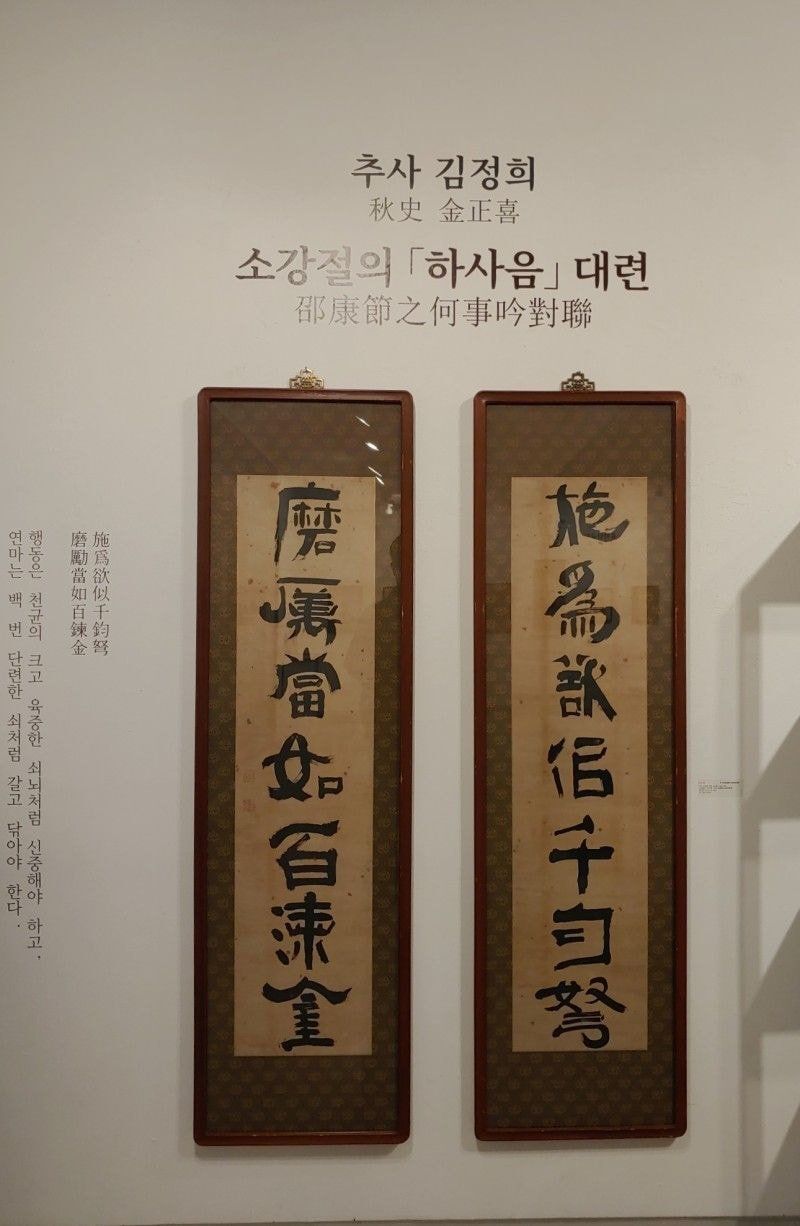 추사 김정희
秋史 金正喜
소강절의 「하사음」 대련
邵康節之何事吟對聯
施為欲佀千勻弩
磨厲當如百湅金
施爲欲似千鈞弩
磨勵當如百鍊金
행동은 천균의 크고 육중한 쇠뇌처럼 신중해야 하고,
연마는 백 번 단련한 쇠처럼 갈고 닦아야 한다.